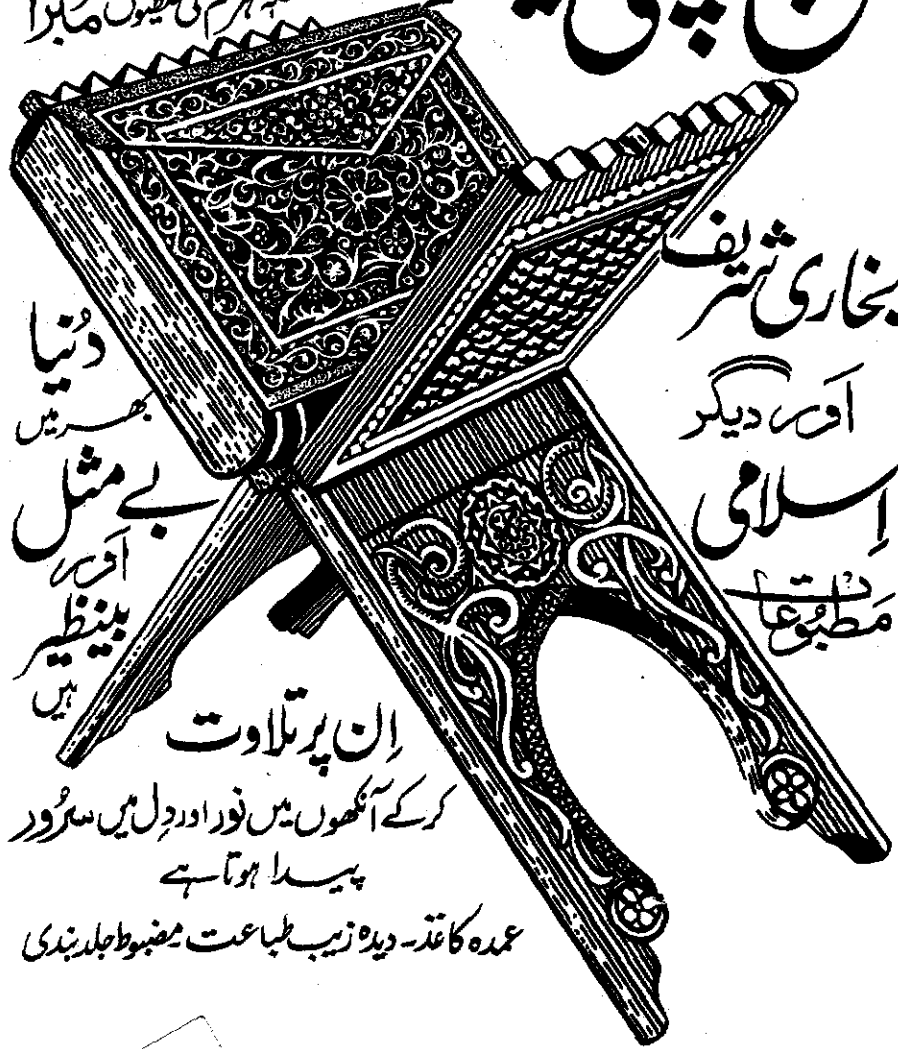 مبرا
بخاری شریف
اور دیگر
اسلامی
مطبوعات
دُنیا
بھر میں
بے مثل
اور
بینظیر
ہیں
اِن پر تلاوت
کرکے آنکھوں میں نور اور دِل میں سُرور
پیدا ہوتا ہے
عمدہ کاغذ۔ دیدہ زیب طباعت مضبوط جلد بندی